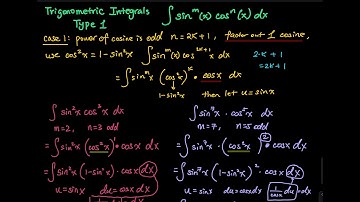 Trigonometric Integrals ∫sin^m(x) cos^n(x) dx
Type 1
Case 1: power of cosine is odd n = 2k+1, factor out 1 cosine,
use cos²x = 1-sin²x ∫sin^m(x) cos^{2k+1}x dx 2·k+1
= 2k+1
= ∫sin^m x (cos²x)^k • cosx dx
1-sin²x then let u = sinx
∫sin²x cos³x dx
m=2, n=3 odd
= ∫sin²x (cos²x) • cosx dx
= ∫sin²x (1-sin²x) • cosx dx
u = sinx du = cosx dx
∫sin⁷x • cos⁵x dx
m=7, n=5 odd
= ∫sin⁷x (cos²x)² • cosx dx
= ∫sin⁷x (1-sin²x)² • cosx dx
u = sinx du = cosx dx